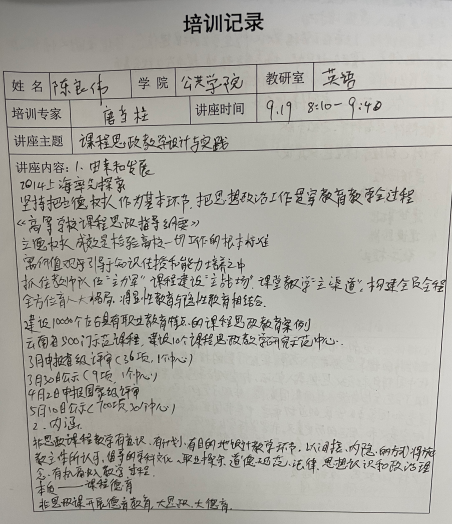 培训记录
姓名 陈良伟 学院 公共学院 教研室 英语
培训专家 唐与桂 讲座时间 9.19 8:10-9:40
讲座主题 课程思政教学设计与实践
讲座内容:1. 由来和发展
2014上海率先探索
坚持把立德树人作为基本环节,把思想政治工作贯穿教育教学全过程
《高等学校课程思政指导纲要》
立德树人成效是检验高校一切工作的根本标准
寓价值观引导于知识传授和能力培养之中
抓住教师队伍"主力军"课程建设"主战场"课堂教学"主渠道",构建全员全程
全方位育人大格局,将显性教育与隐性教育相结合.
建设10000个左右具有职业教育特点的课程思政教育案例
云南省500门示范课程,建设10个课程思政教学研究示范中心..
3月申报省级评审(36项,1个中心)
3月30日公示(9项,1个中心)
4月2日申报国家级评审
5月10日公示(700项,30个中心)
2. 内涵
非思政课程教学有意识、有计划、有目的地设计教学环节,以间接、内隐的方式将施
教主体所认可、倡导的学科文化、职业探索、道德规范、法律、思想认识和政治理
念,有机融入教学过程.
本质——课程德育
非思政课开展德育教育,大思政、大德育.